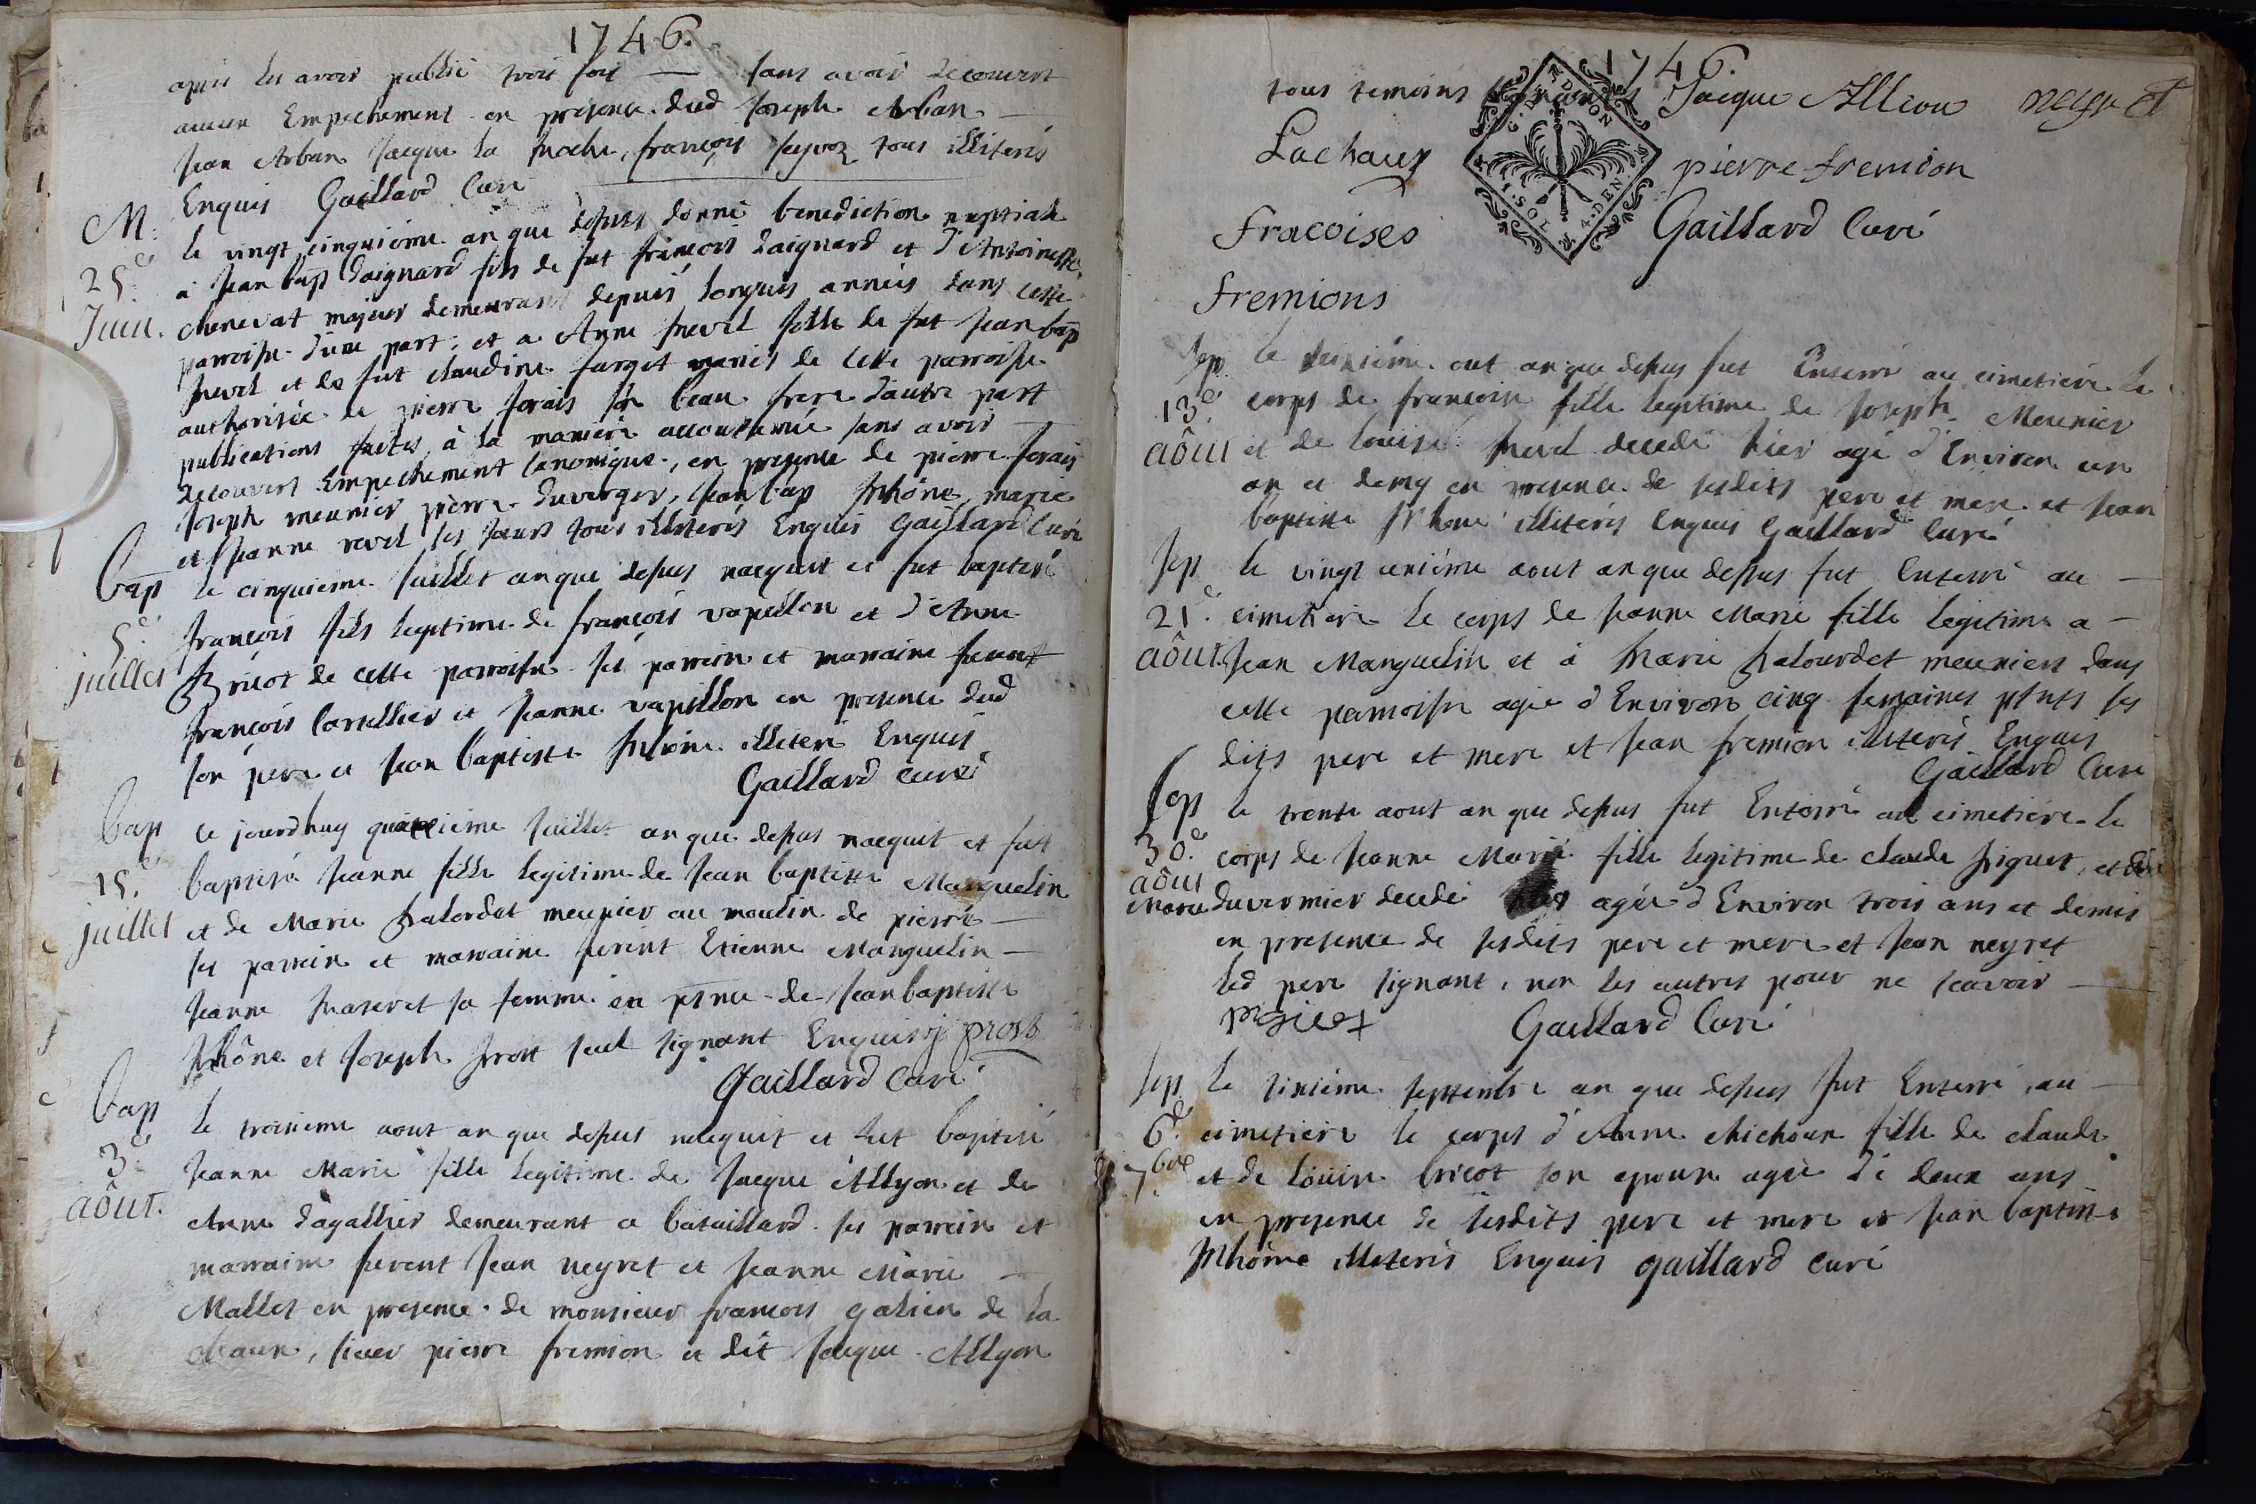 1746.
apres les avoir publié trois fois — sans avoir decouvert
aucun Empechement en presence dud Joseph Arban —
Jean Arban Jacque la roche, françois seyvoz tous illiterés
Enquis Gaillard Curé
M. le vingt cinquieme an que dessus donné benediction nuptiale
25e a Jean bap Daignard fils de fut françois Daignard et d'Antoinette
Juin. chenevat majeur demeurant depuis longues années dans cette
parroisse d'une part, et a Anne revel fille de fut Jean bap
revel et de fut claudine farget mariés de cette parroisse
authorisée de pierre forais son beau frere d'autre part
publications faites à la maniere accoutumée sans avoir
decouvert Empechement canonique, en presence de pierre forais
Joseph meunier pierre duverger, Jean bap Prhône, marie
et Jeanne revel ses sœurs tous illiterés Enquis Gaillard Curé
bap le cinquieme Juillet an que dessus nacquit et fut baptisé
5e françois fils legitime de françois vapillon et d'Anne
juillet Bricot de cette parroisse ses parrein et marraine furent
françois Cartellier et Jeanne vapillon en presence dud
son pere et Jean baptiste Prhône illiteré Enquis
Gaillard curé
bap ce jourdhuy quinzieme Juillet an que dessus nacquit et fut
15e baptisé Jeanne fille legitime de Jean baptiste Manguelin
juillet et de Marie Palordet meunier au moulin de pierre —
ses parrein et marraine furent Etienne Manguelin —
Jeanne sa femme en pnce de Jean baptiste
Prhône et Joseph Prost seul signant Enquis j prost
Gaillard Curé
bap le troisieme aout an que dessus nacquit et fut baptisé
3e Jeanne Marie fille legitime de Jacque Allyon et de
aôut. Anne Dagallier demeurant a bataillard ses parrein et
marraine furent Jean neyret et Jeanne Marie —
Mallet en presence de monsieur francois galien de la
chaux, sieur pierre fremion et dit Jacque Allyon
1746.
tous temoins signants Jacque Alliou neyret
Lachaux pierre fremion
G. D. DIJON 1. SOL. 4. DEN.
fracoises Gaillard Curé
fremions
Sep. le aout an que dessus fut Enterré au cimetiere le
13e corps de francoise fille legitime de Joseph Meunier
aôut et de louise revel decedé hier agé d'Environ un
an et demy en presence de sesdits pere et mere et Jean
baptiste Prhone illiterés Enquis Gaillard Curé
Sep le vingt unième aout an que dessus fut Enterré au —
21e cimetiere le corps de Jeanne Marie fille legitime a —
aôut. Jean Manguelin et à Marie Palourdet meuniers dans
cette parroisse agée d'Environ cinq semaines pnts ses
dits pere et mere et Jean fremion illiterés Enquis
Gaillard Curé
Sep le trente aout an que dessus fut Enterré au cimetiere le
30e corps de Jeanne Marie fille legitime de claude Piquet, et de
aôut
Marie duvernier decedé hier agée d'Environ trois ans et demis
en presence de sesdits pere et mere et Jean neyret
led pere signant, non les autres pour ne scavoir —
Gaillard Curé
Sep le sixiéme septembre an que dessus fut Enterré, au —
6e cimetiere le corps d'Anne Michoux fille de claude
7bre et de loüise bricot son epouse agée de deux ans
en presence de sesdits pere et mere et Jean baptiste
Prhône illiterés Enquis gaillard curé